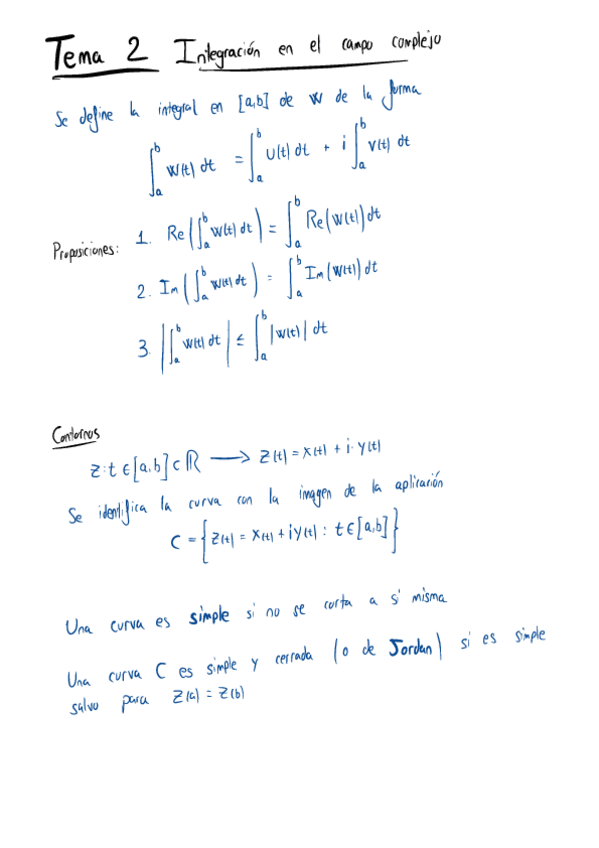 Tema 2 Integración en el campo complejo
Se define la integral en [a,b] de w de la forma
∫_a^b w(t) dt = ∫_a^b U(t) dt + i ∫_a^b V(t) dt
Proposiciones: 1. Re(∫_a^b w(t) dt) = ∫_a^b Re(w(t)) dt
2. Im(∫_a^b w(t) dt) = ∫_a^b Im(w(t)) dt
3. |∫_a^b w(t) dt| ≤ ∫_a^b |w(t)| dt
Contornos
z: t ∈ [a,b] ⊂ ℝ ⟶ z(t) = x(t) + i · y(t)
Se identifica la curva con la imagen de la aplicación
C = {z(t) = x(t) + iy(t) : t ∈ [a,b]}
Una curva es simple si no se corta a sí misma
Una curva C es simple y cerrada (o de Jordan) si es simple
salvo para z(a) = z(b)